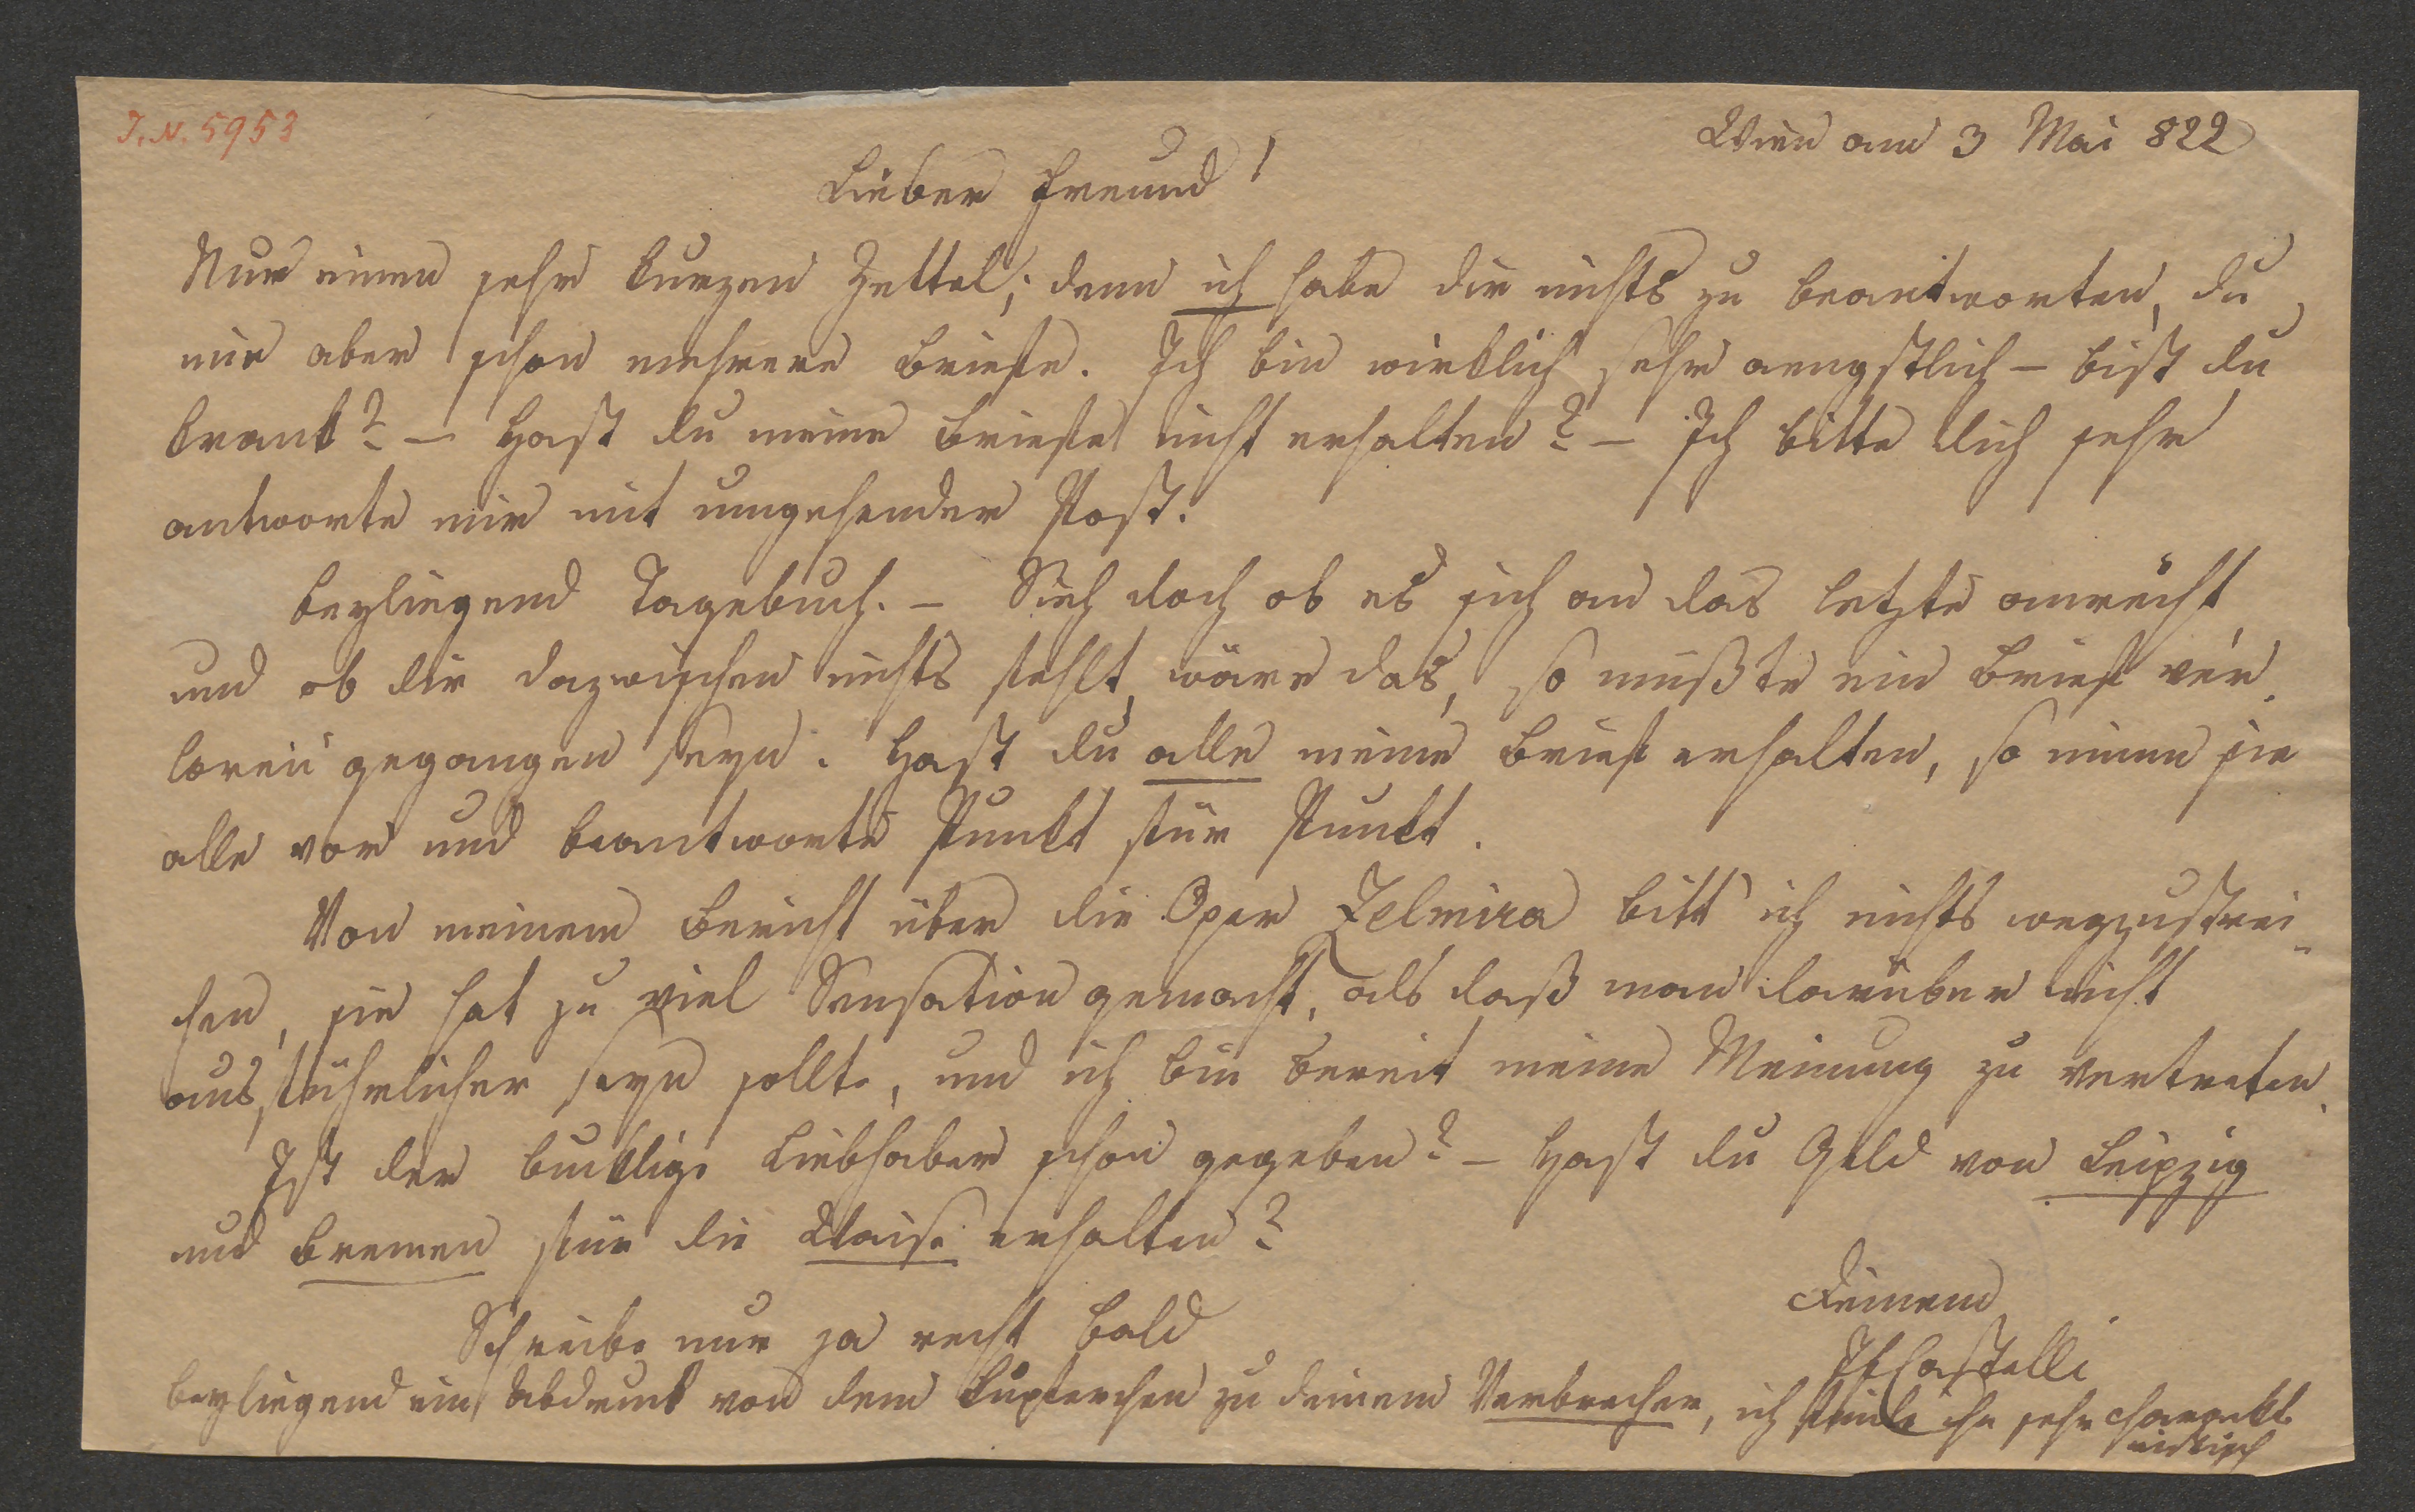 J. N. 5953
Wien am 3 Mai 822
Lieber Freund!
Nur einen sehr kurzen Zettel; denn ich habe dir nichts zu beantworten, du
mir aber schon mehrere Briefe. Ich bin wirklich sehr aengstlich – bist du
krank? – Hast du meine Briefe nicht erhalten? – Ich bitte dich sehr
antworte mir mit umgehender Post.
Beyliegend Tagebuch. – Sieh doch ob es sich an das letzte anreiht
und ob dir dazwischen nichts fehlt, wäre das, so müßte ein Brief ver-
loren gegangen seyn. Hast du alle meine Briefe erhalten, so nimm sie
alle vor und beantworte Punkt für Punkt.
Von meinem Bericht über die Oper Zelmira bitt ich nichts wegzustrei-
chen, sie hat zu viel Sensation gemacht, als daß man darüber nicht
ausführlicher seyn sollte, und ich bin bereit meine Meinung zu vertreten.
Ist der bucklige Liebhaber schon gegeben? – Hast du Geld von Leipzig
und Bremen für die Waise erhalten?
Schreibe nur ja recht bald
Deinem
IFCastelli
Beyliegend ein Abdruck von dem Kupferchen zu deinem Verbrecher, ich finde ihn sehr charackte
ristisch